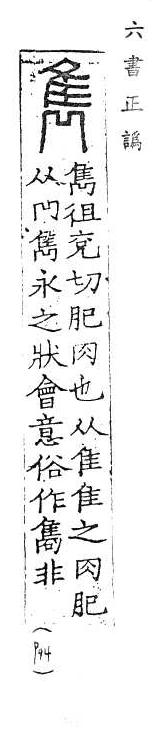 六書正譌
雋
雋徂兖切肥肉也从隹隹之肉肥
从冂雋永之狀會意俗作雋非
(P94)